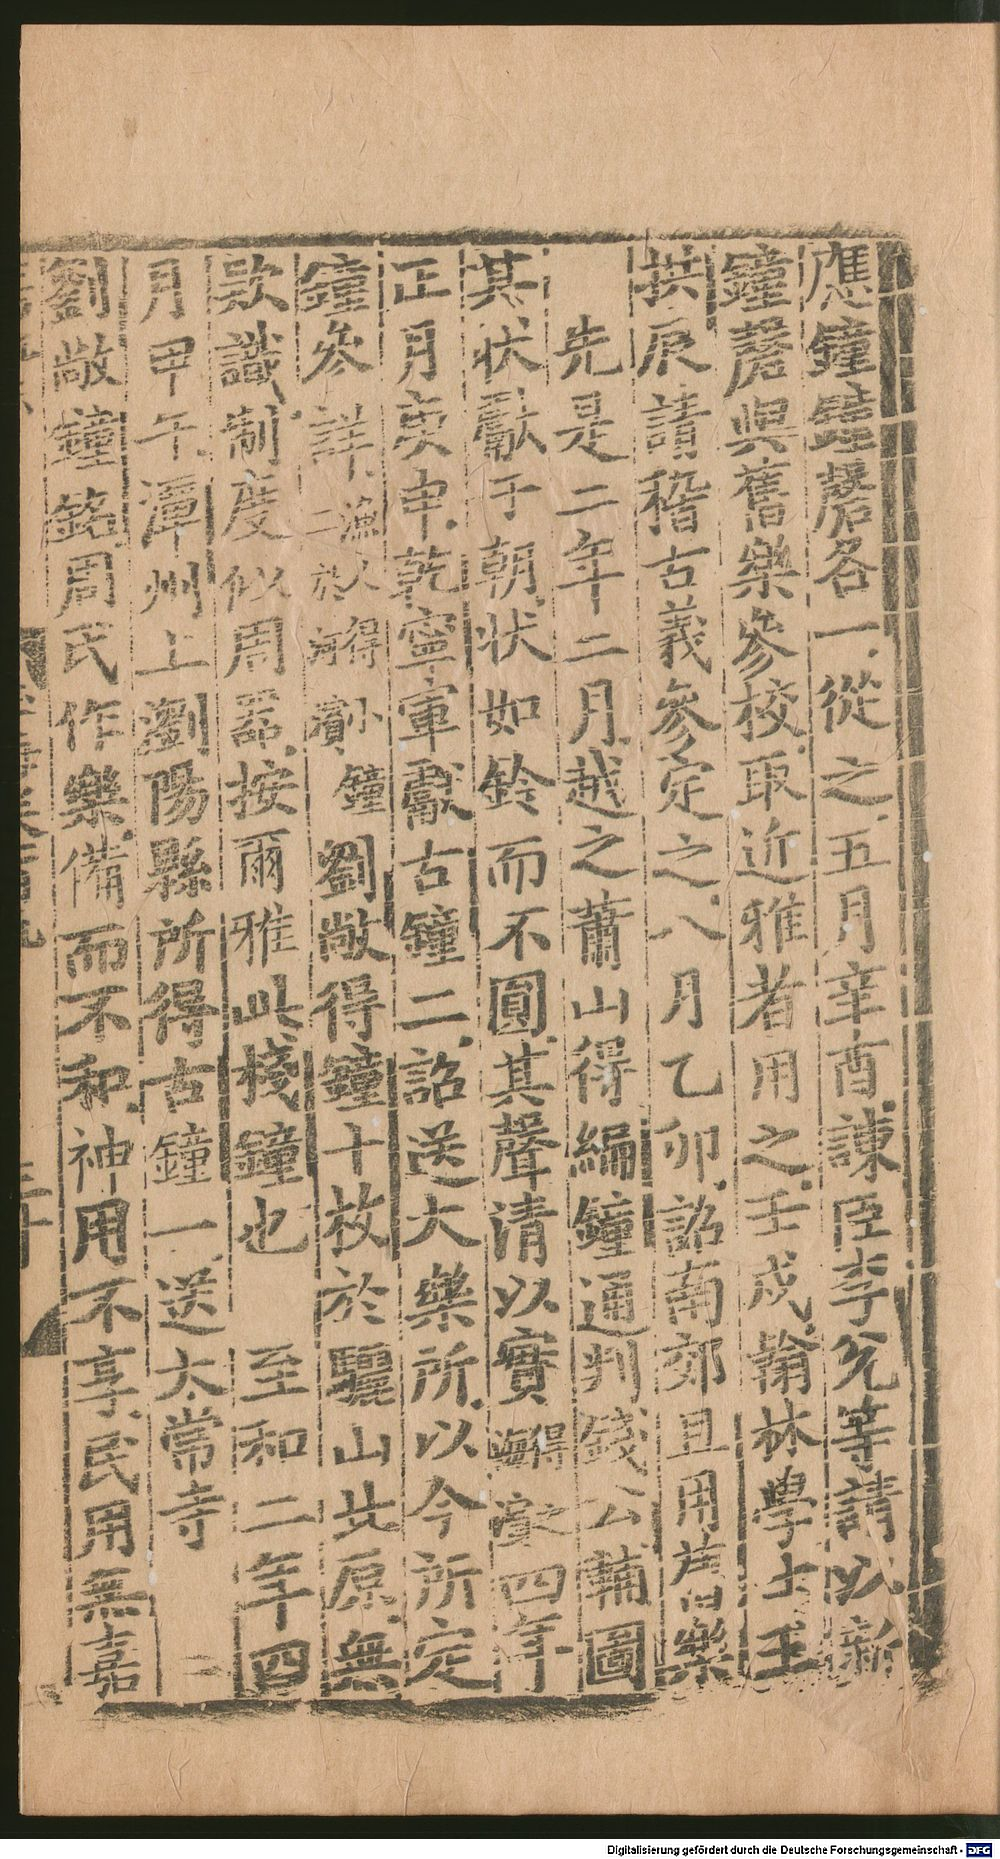 應鐘鐘磬各一從之五月辛酉諫臣李兊等請以新
鐘磬與舊樂參校取近雅者用之壬戌翰林學士王
拱辰請稽古義參定之八月乙卯詔南郊且用舊樂
先是二年二月越之蕭山得編鐘通判錢公輔圖
其状獻于朝状如鈴而不圓其聲清以實四年
正月庚申乾寧軍獻古鐘二詔送大樂所以今所定
鐘參詳鐘劉敞得鐘十枚於驪山此原無
欵識制度似周器按爾雅此棧鐘也 至和二年四
月甲午潭州上瀏陽縣所得古鐘一送太常寺
劉敞鐘銘周民作樂備而不和神用不享民用無嘉
Digitalisierung gefördert durch die Deutsche Forschungsgemeinschaft - DFG